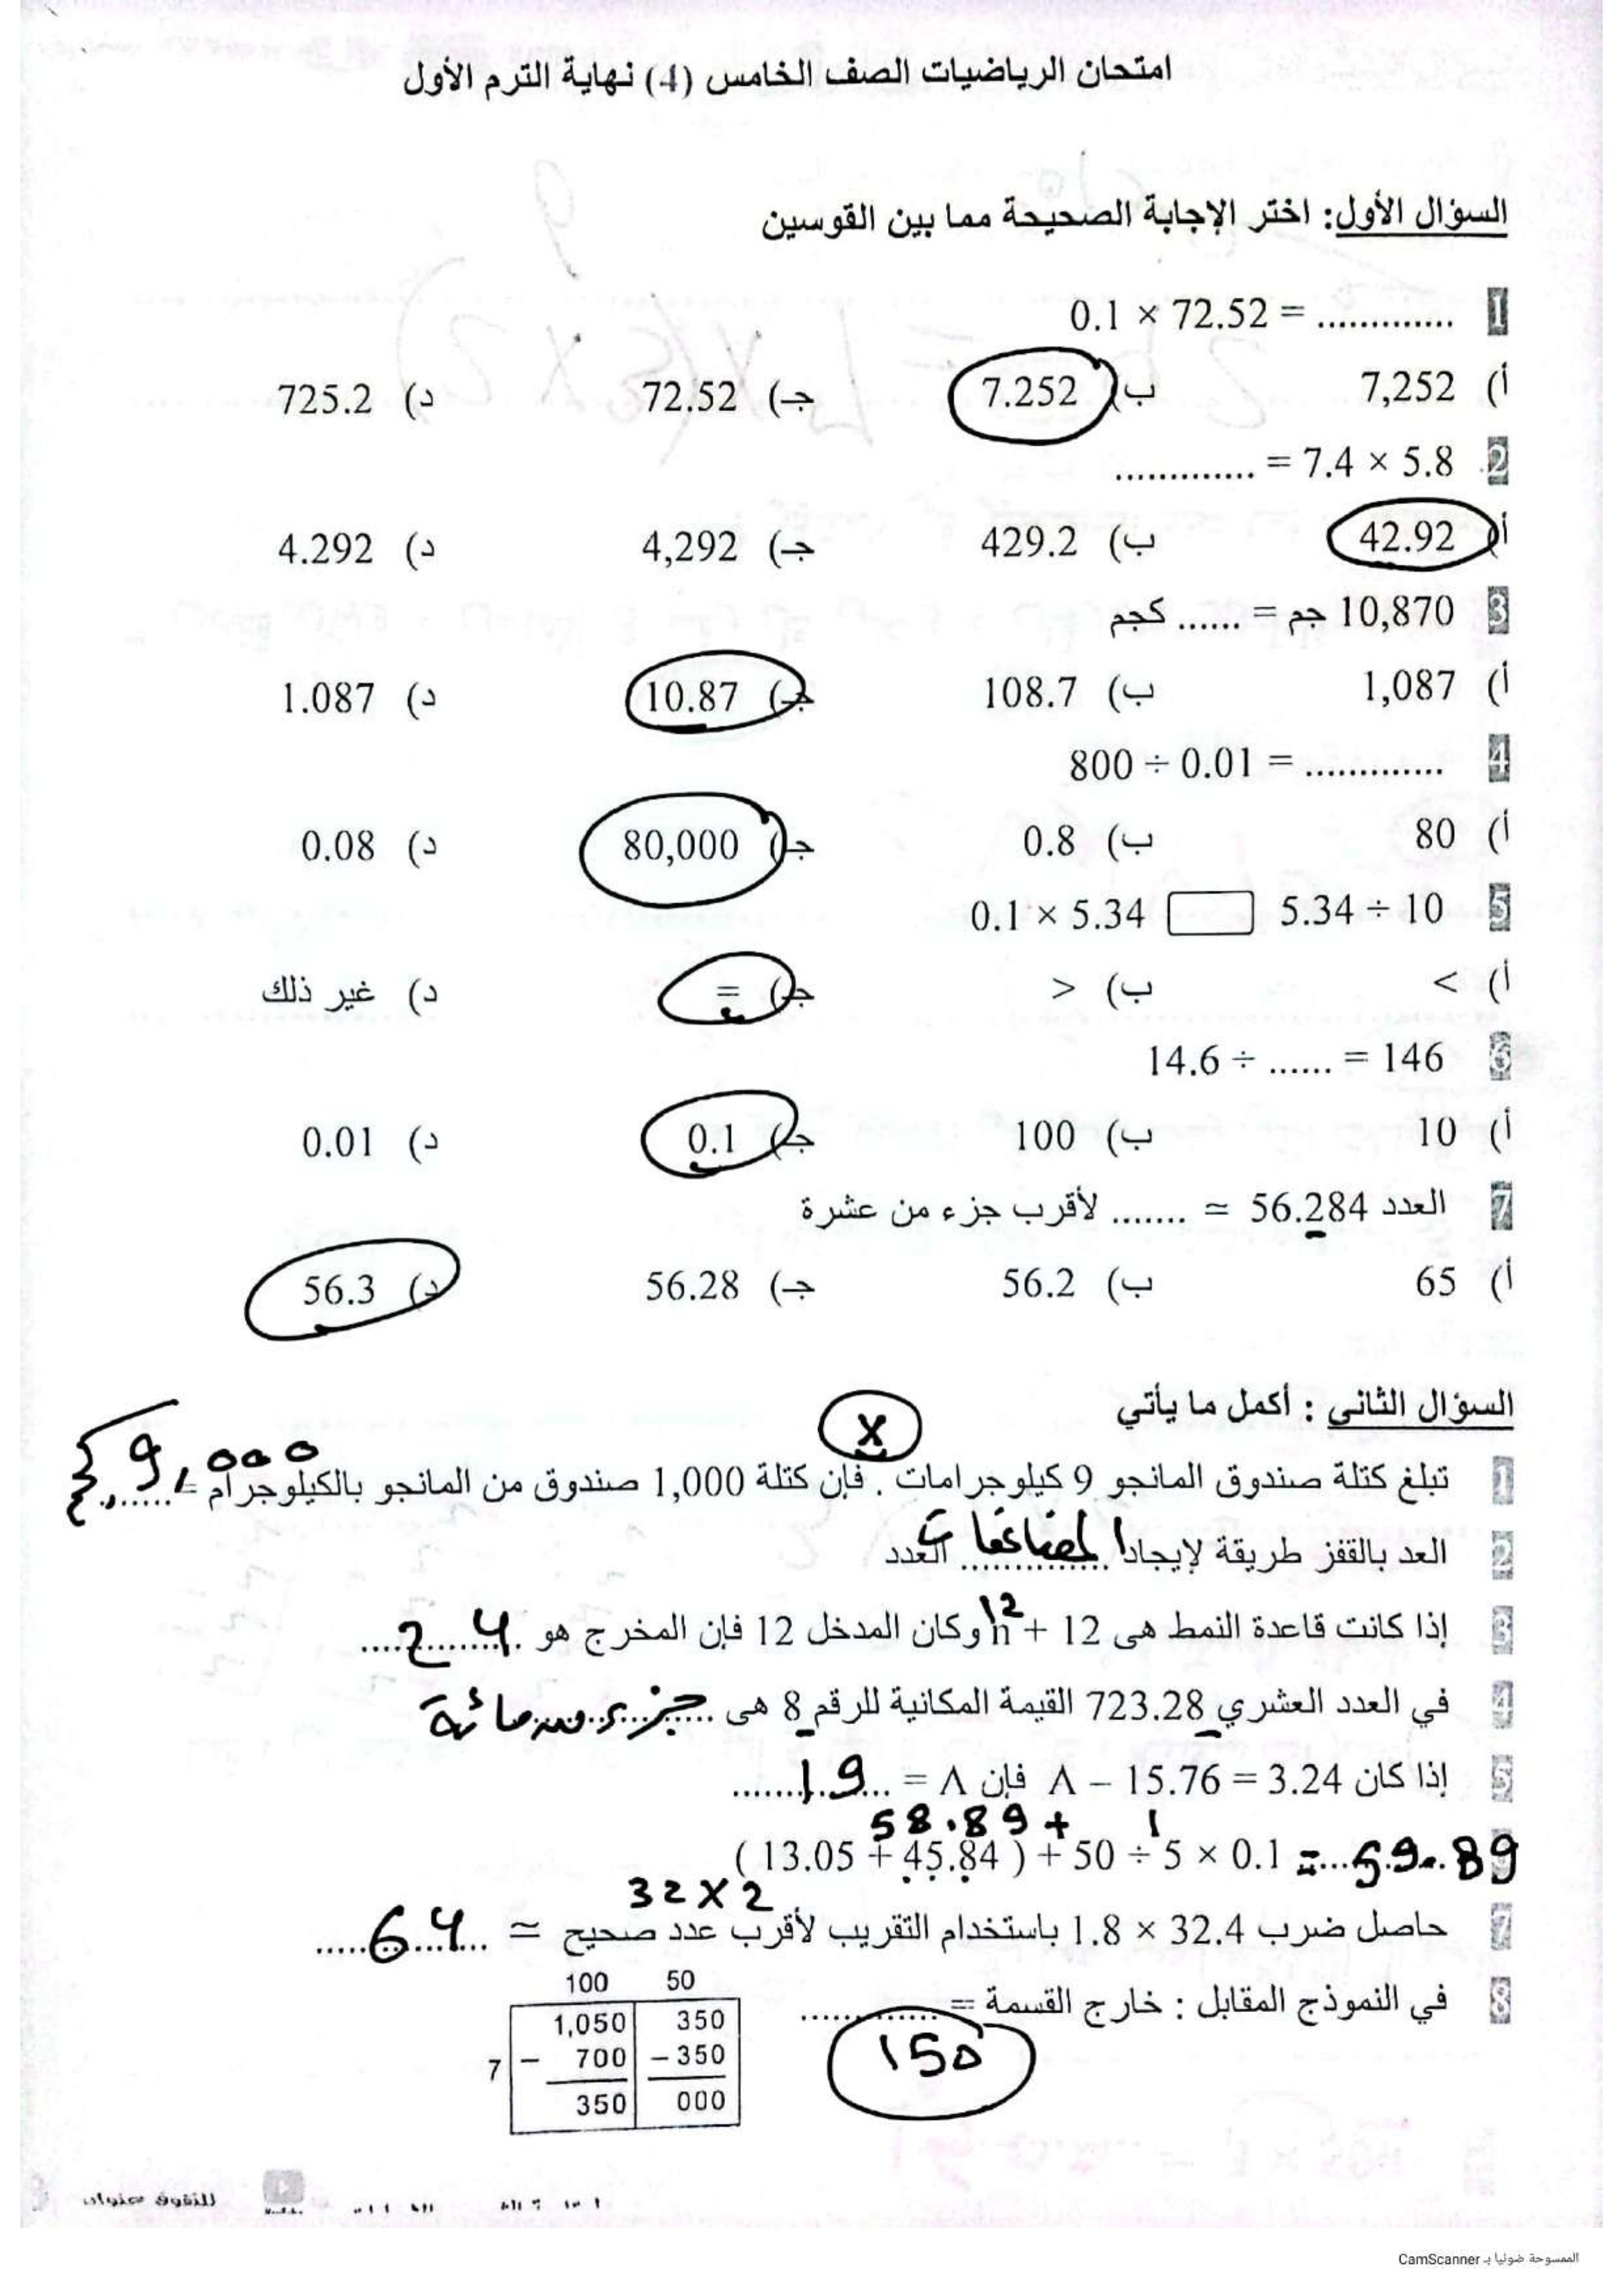 امتحان الرياضيات الصف الخامس (4) نهاية الترم الأول
السؤال الأول: اختر الإجابة الصحيحة مما بين القوسين
1 0.1 × 72.52 = .............
أ) 7,252 ب) 7.252 جـ) 72.52 د) 725.2
2 ............. = 7.4 × 5.8
أ) 42.92 ب) 429.2 جـ) 4,292 د) 4.292
3 10,870 جم = ...... كجم
أ) 1,087 ب) 108.7 جـ) 10.87 د) 1.087
4 800 ÷ 0.01 = .............
أ) 80 ب) 0.8 جـ) 80,000 د) 0.08
5 0.1 × 5.34 5.34 ÷ 10
أ) < ب) > جـ) = د) غير ذلك
6 14.6 ÷ ...... = 146
أ) 10 ب) 100 جـ) 0.1 د) 0.01
7 العدد 56.284 ≃ ....... لأقرب جزء من عشرة
أ) 65 ب) 56.2 جـ) 56.28 د) 56.3
السؤال الثاني : أكمل ما يأتي
x
1 تبلغ كتلة صندوق المانجو 9 كيلوجرامات . فإن كتلة 1,000 صندوق من المانجو بالكيلوجرام = 9,000
2 العد بالقفز طريقة لإيجاد المضاعفات العدد
12
3 إذا كانت قاعدة النمط هى n + 12 وكان المدخل 12 فإن المخرج هو 24
4 في العدد العشري 723.28 القيمة المكانية للرقم 8 هى جزء من مائة
5 إذا كان 3.24 = 15.76 – ٨ فإن ٨ = 19
58.89 + 1
6 ( 13.05 + 45.84 ) + 50 ÷ 5 × 0.1 = 59.89
32 x 2
7 حاصل ضرب 32.4 × 1.8 باستخدام التقريب لأقرب عدد صحيح ≃ 64
8 في النموذج المقابل : خارج القسمة = .............
150
100 50
1,050 350
7 – 700 – 350
350 000
للتفوق عنوان
الممسوحة ضوئيا بـ CamScanner